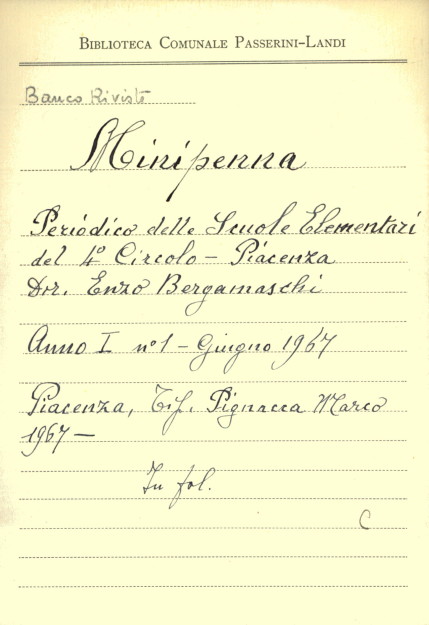 BIBLIOTECA COMUNALE PASSERINI-LANDI
Banco Riviste
Minipenna
Periódico delle Scuole Elementari
del 4º Circolo - Piacenza
Dir. Enzo Bergamaschi
Anno I nº 1 - Giugno 1967
Piacenza, Tip. Pignacca Marco
1967 -
In fol.
C